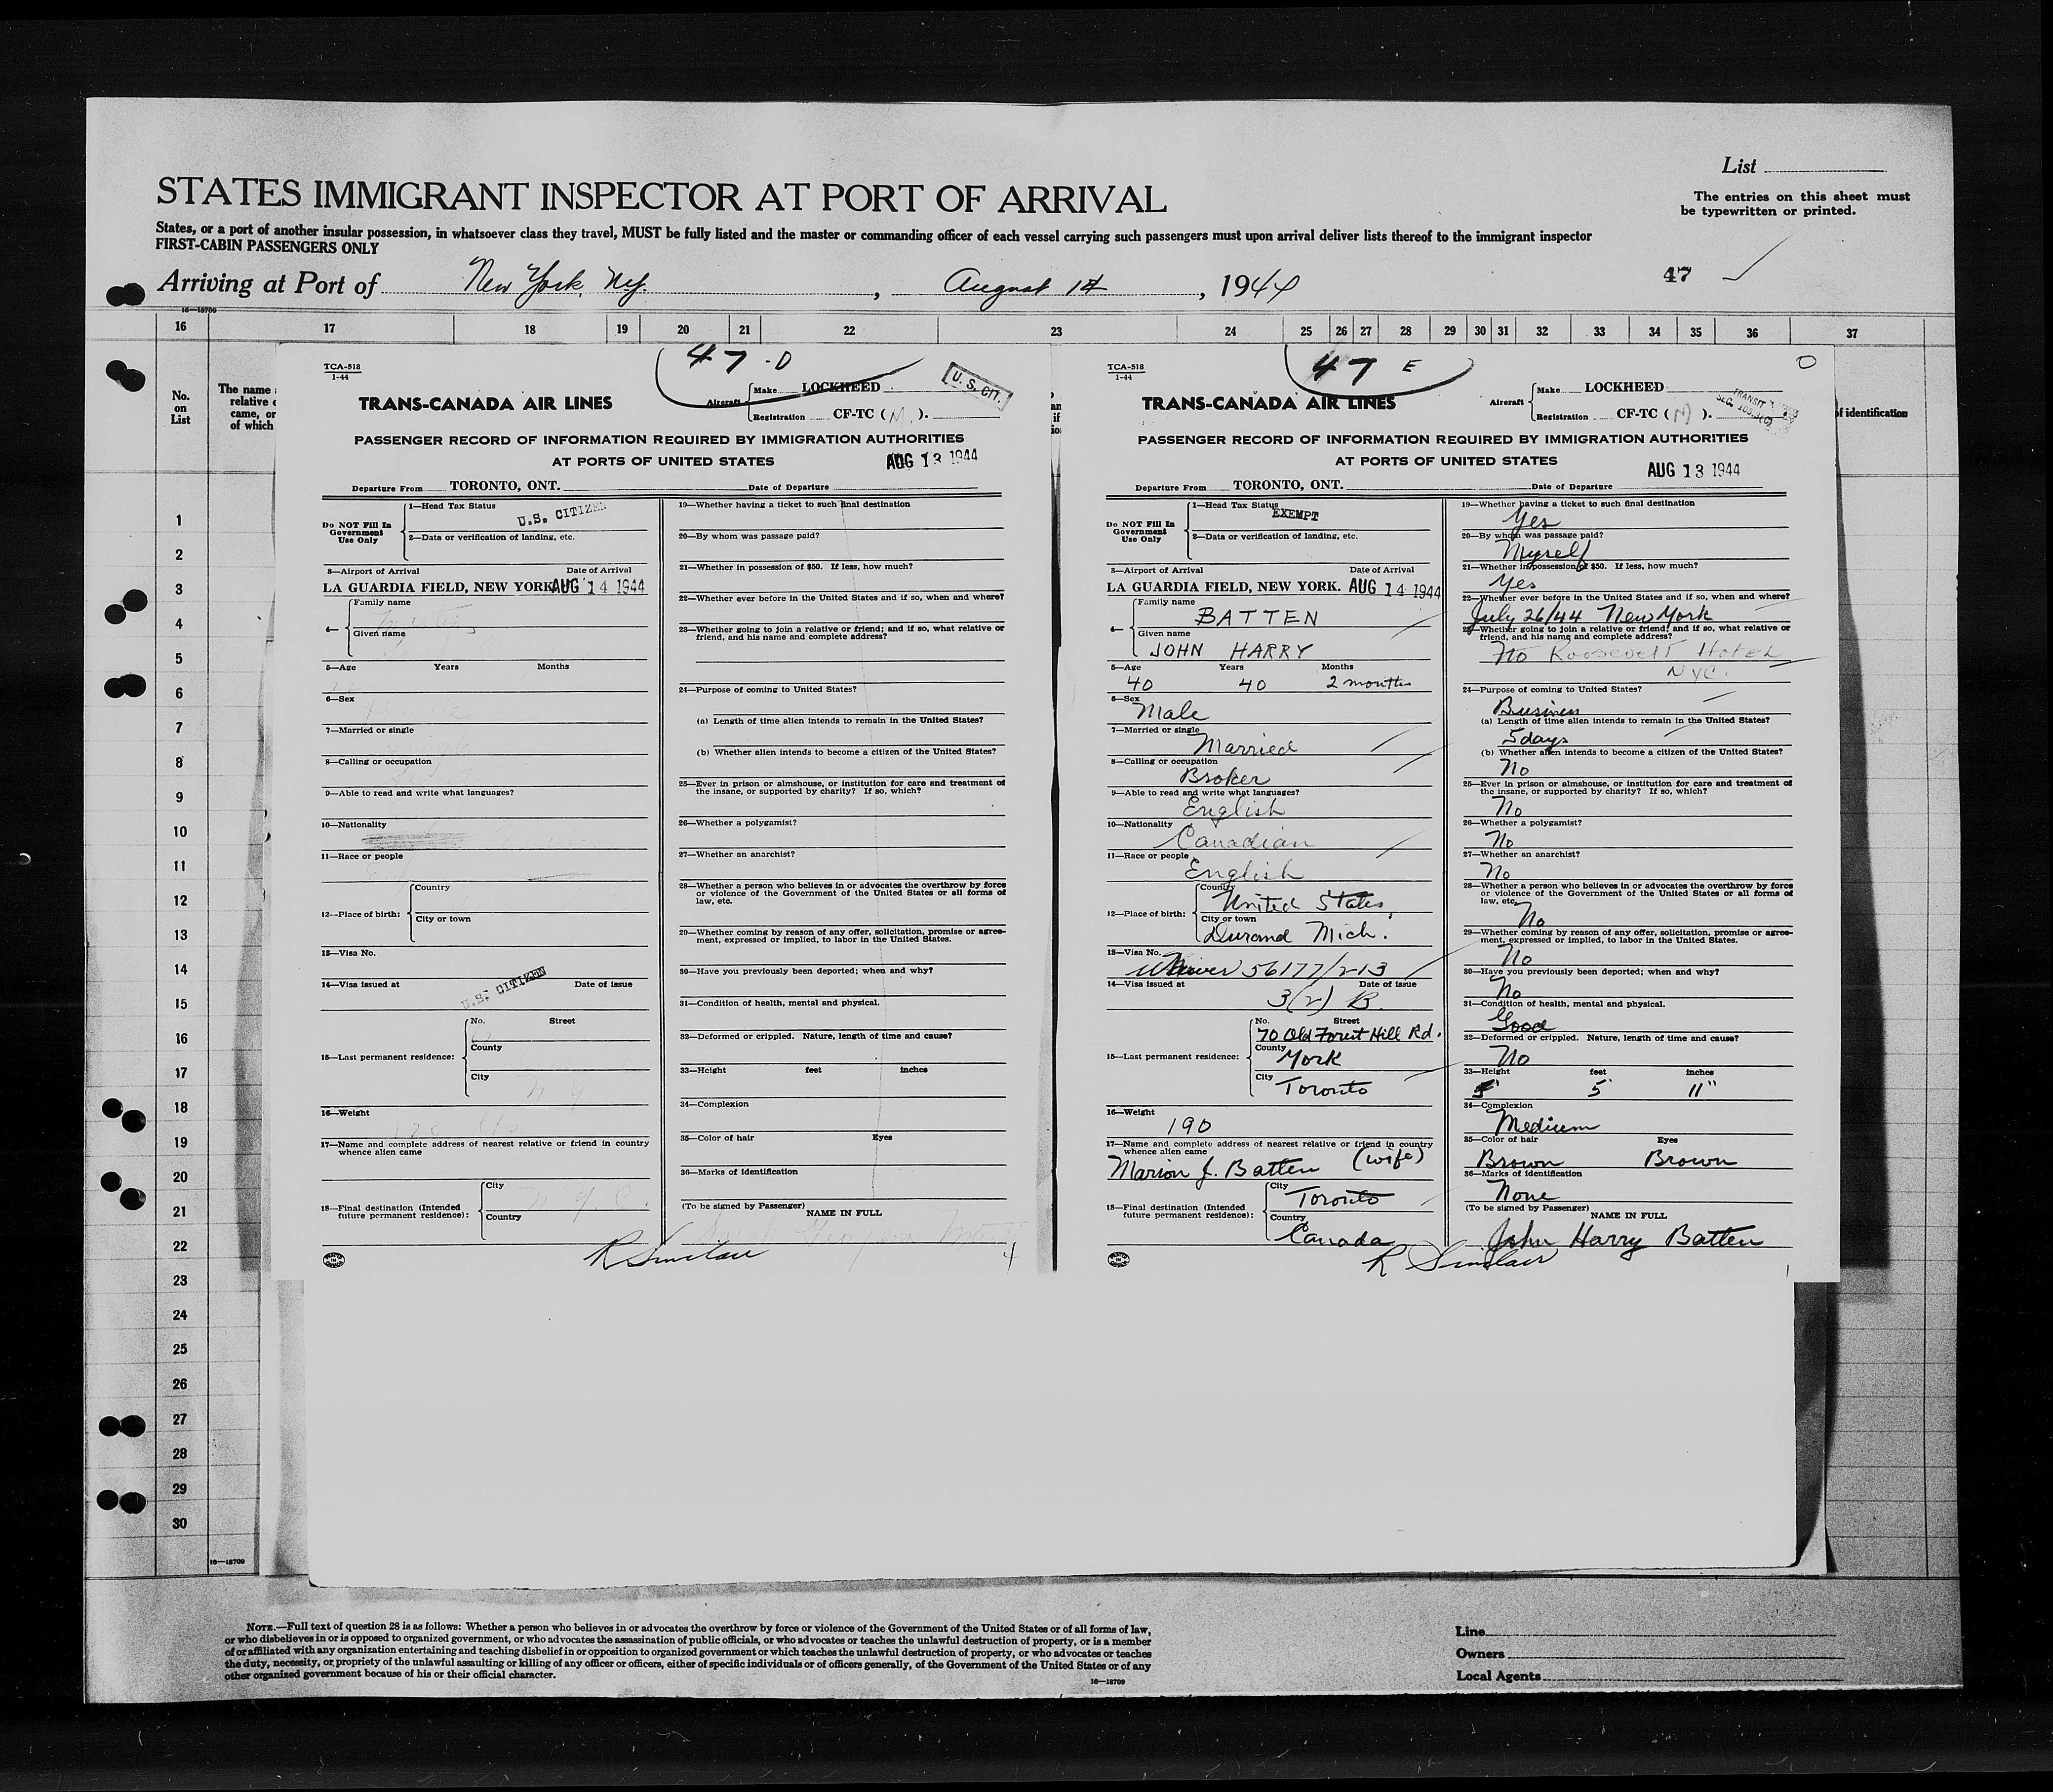 List
STATES IMMIGRANT INSPECTOR AT PORT OF ARRIVAL
The entries on this sheet must
be typewritten or printed.
States, or a port of another insular possession, in whatsoever class they travel, MUST be fully listed and the master or commanding officer of each vessel carrying such passengers must upon arrival deliver lists thereof to the immigrant inspector
FIRST-CABIN PASSENGERS ONLY
Arriving at Port of New York, N.Y. , August 14 , 1944
47
16—18709
16 17 18 19 20 21 22 23 24 25 26 27 28 29 30 31 32 33 34 35 36 37
No.
on
List
The name
relative
came, or
of which
of identification
1
2
3
4
5
6
7
8
9
10
11
12
13
14
15
16
17
18
19
20
21
22
23
24
25
26
27
28
29
30
16—18709
47-D
TCA-518
1-44
U. S. CIT.
TRANS-CANADA AIR LINES
Aircraft
Make LOCKHEED
Registration CF-TC (N).
PASSENGER RECORD OF INFORMATION REQUIRED BY IMMIGRATION AUTHORITIES
AT PORTS OF UNITED STATES
AUG 13 1944
Departure From TORONTO, ONT. Date of Departure
Do NOT Fill In
Government
Use Only
1—Head Tax Status
U.S. CITIZEN
2—Data or verification of landing, etc.
3—Airport of Arrival Date of Arrival
LA GUARDIA FIELD, NEW YORK. AUG 14 1944
4—
Family name
Given name
5—Age Years Months
6—Sex
7—Married or single
8—Calling or occupation
9—Able to read and write what languages?
10—Nationality
11—Race or people
12—Place of birth:
Country
City or town
13—Visa No.
14—Visa issued at Date of issue
U.S. CITIZEN
15—Last permanent residence:
No. Street
County
City
N Y
16—Weight
17—Name and complete address of nearest relative or friend in country
whence alien came
18—Final destination (Intended
future permanent residence):
City
N. Y. C.
Country
19—Whether having a ticket to such final destination
20—By whom was passage paid?
21—Whether in possession of $50. If less, how much?
22—Whether ever before in the United States and if so, when and where?
23—Whether going to join a relative or friend; and if so, what relative or
friend, and his name and complete address?
24—Purpose of coming to United States?
(a) Length of time alien intends to remain in the United States?
(b) Whether alien intends to become a citizen of the United States?
25—Ever in prison or almshouse, or institution for care and treatment of
the insane, or supported by charity? If so, which?
26—Whether a polygamist?
27—Whether an anarchist?
28—Whether a person who believes in or advocates the overthrow by force
or violence of the Government of the United States or all forms of
law, etc.
29—Whether coming by reason of any offer, solicitation, promise or agree-
ment, expressed or implied, to labor in the United States.
30—Have you previously been deported; when and why?
31—Condition of health, mental and physical.
32—Deformed or crippled. Nature, length of time and cause?
33—Height feet inches
34—Complexion
35—Color of hair Eyes
36—Marks of identification
(To be signed by Passenger)
NAME IN FULL
R Sinclair
4
47 E
TCA-518
1-44
TRANS-CANADA AIR LINES
Aircraft
Make LOCKHEED
Registration CF-TC (N).
TRANSIT
PASSENGER RECORD OF INFORMATION REQUIRED BY IMMIGRATION AUTHORITIES
AT PORTS OF UNITED STATES
AUG 13 1944
Departure From TORONTO, ONT. Date of Departure
Do NOT Fill In
Government
Use Only
1—Head Tax Status
EXEMPT
2—Data or verification of landing, etc.
3—Airport of Arrival Date of Arrival
LA GUARDIA FIELD, NEW YORK. AUG 14 1944
4—
Family name
BATTEN
Given name
JOHN HARRY
5—Age Years Months
40 40 2 months
6—Sex
Male
7—Married or single
Married
8—Calling or occupation
Broker
9—Able to read and write what languages?
English
10—Nationality
Canadian
11—Race or people
English
12—Place of birth:
Country
United States
City or town
Durand Mich.
13—Visa No.
Waiver 56177/213
14—Visa issued at Date of issue
3(2) B.
15—Last permanent residence:
No. Street
70 Old Forest Hill Rd.
County
York
City
Toronto
16—Weight
190
17—Name and complete address of nearest relative or friend in country
whence alien came
Marion J. Batten (wife)
18—Final destination (Intended
future permanent residence):
City
Toronto
Country
Canada
19—Whether having a ticket to such final destination
Yes
20—By whom was passage paid?
Myself
21—Whether in possession of $50. If less, how much?
Yes
22—Whether ever before in the United States and if so, when and where?
July 26/44 New York
23—Whether going to join a relative or friend; and if so, what relative or
friend, and his name and complete address?
No Roosevelt Hotel
NYC.
24—Purpose of coming to United States?
Business
(a) Length of time alien intends to remain in the United States?
5 days
(b) Whether alien intends to become a citizen of the United States?
No
25—Ever in prison or almshouse, or institution for care and treatment of
the insane, or supported by charity? If so, which?
No
26—Whether a polygamist?
No
27—Whether an anarchist?
No
28—Whether a person who believes in or advocates the overthrow by force
or violence of the Government of the United States or all forms of
law, etc.
No
29—Whether coming by reason of any offer, solicitation, promise or agree-
ment, expressed or implied, to labor in the United States.
No
30—Have you previously been deported; when and why?
No
31—Condition of health, mental and physical.
Good
32—Deformed or crippled. Nature, length of time and cause?
No
33—Height feet inches
5 11"
34—Complexion
Medium
35—Color of hair Eyes
Brown Brown
36—Marks of identification
None
(To be signed by Passenger)
NAME IN FULL
John Harry Batten
R Sinclair
NOTE.—Full text of question 28 is as follows: Whether a person who believes in or advocates the overthrow by force or violence of the Government of the United States or of all forms of law,
or who disbelieves in or is opposed to organized government, or who advocates the assassination of public officials, or who advocates or teaches the unlawful destruction of property, or is a member
of or affiliated with any organization entertaining and teaching disbelief in or opposition to organized government or which teaches the unlawful destruction of property, or who advocates or teaches
the duty, necessity, or propriety of the unlawful assaulting or killing of any officer or officers, either of specific individuals or of officers generally, of the Government of the United States or of any
other organized government because of his or their official character.
16—18709
Line
Owners
Local Agents